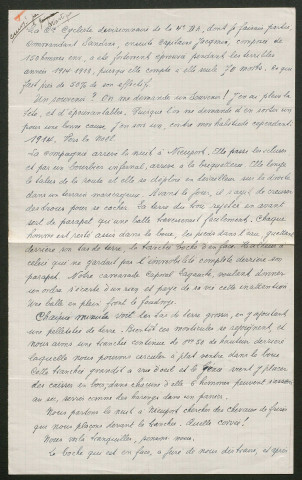 La Cie Cycliste divisionnaire de la 4e D.I., dont je faisais partie,
Commandant Sandrier, ensuite Capitaine Jacquin, compris de
150 hommes env., a été fortement éprouvée pendant les terribles
années 1914-1918, puisqu'elle compte à elle seule 70 morts, ce qui
fait près de 50% de son effectif.
Un souvenir ? On me demande un souvenir ! J'en ai plein la
tête, et d'épouvantables. Puisque l'on me demande d'en sortir un
pour une bonne cause, j'en sors un, contre mes habitudes cependant.
1914. Vers la Noël
La compagnie arrive la nuit à Nieuport. Elle passe les écluses
et par un bourbier infernal, arrive à la briqueterie. Elle longe
le talus de la route et elle se déploie en tirailleurs sur la droite
dans un terrain marécageux. Avant le jour, il s'agit de creuser
des trous pour se cacher. La terre des trous, rejetée en avant
sert de parapet que une balle traverserait facilement. Chaque
homme est resté assis dans la boue, les pieds dans l'eau,
derrière un tas de terre, la tranchée boche d'en face. Malheur à
celui qui ne gardait pas l'immobilité complète derrière son
parapet. Notre camarade Caporal voulant donner
un ordre s'écarte d'un rien et paye de sa vie cette inattention
Une balle en plein front le foudroye.
Chaque nuit voit les tas de terre grossir, en y ajoutant
une pelletée de terre. Bientôt ces monticules se rejoignent, et
nous avons une tranchée continue de 1m50 de hauteur derrière
laquelle nous pouvons circuler à plat ventre dans la boue
Cette tranchée grandit à vue d'oeil et le Génie vient y placer
des caisses en bois, dans chacune d'elle 6 hommes peuvent s'asseoir
au sec, serrés comme des harengs dans un panier.
Nous partons la nuit à Nieuport chercher des chevaux de frise
que nous plaçons devant la tranchée. Quelle corvée !
Nous voilà tranquilles, pensons nous.
Le boche qui est en face, a juré de nous détruire, et après